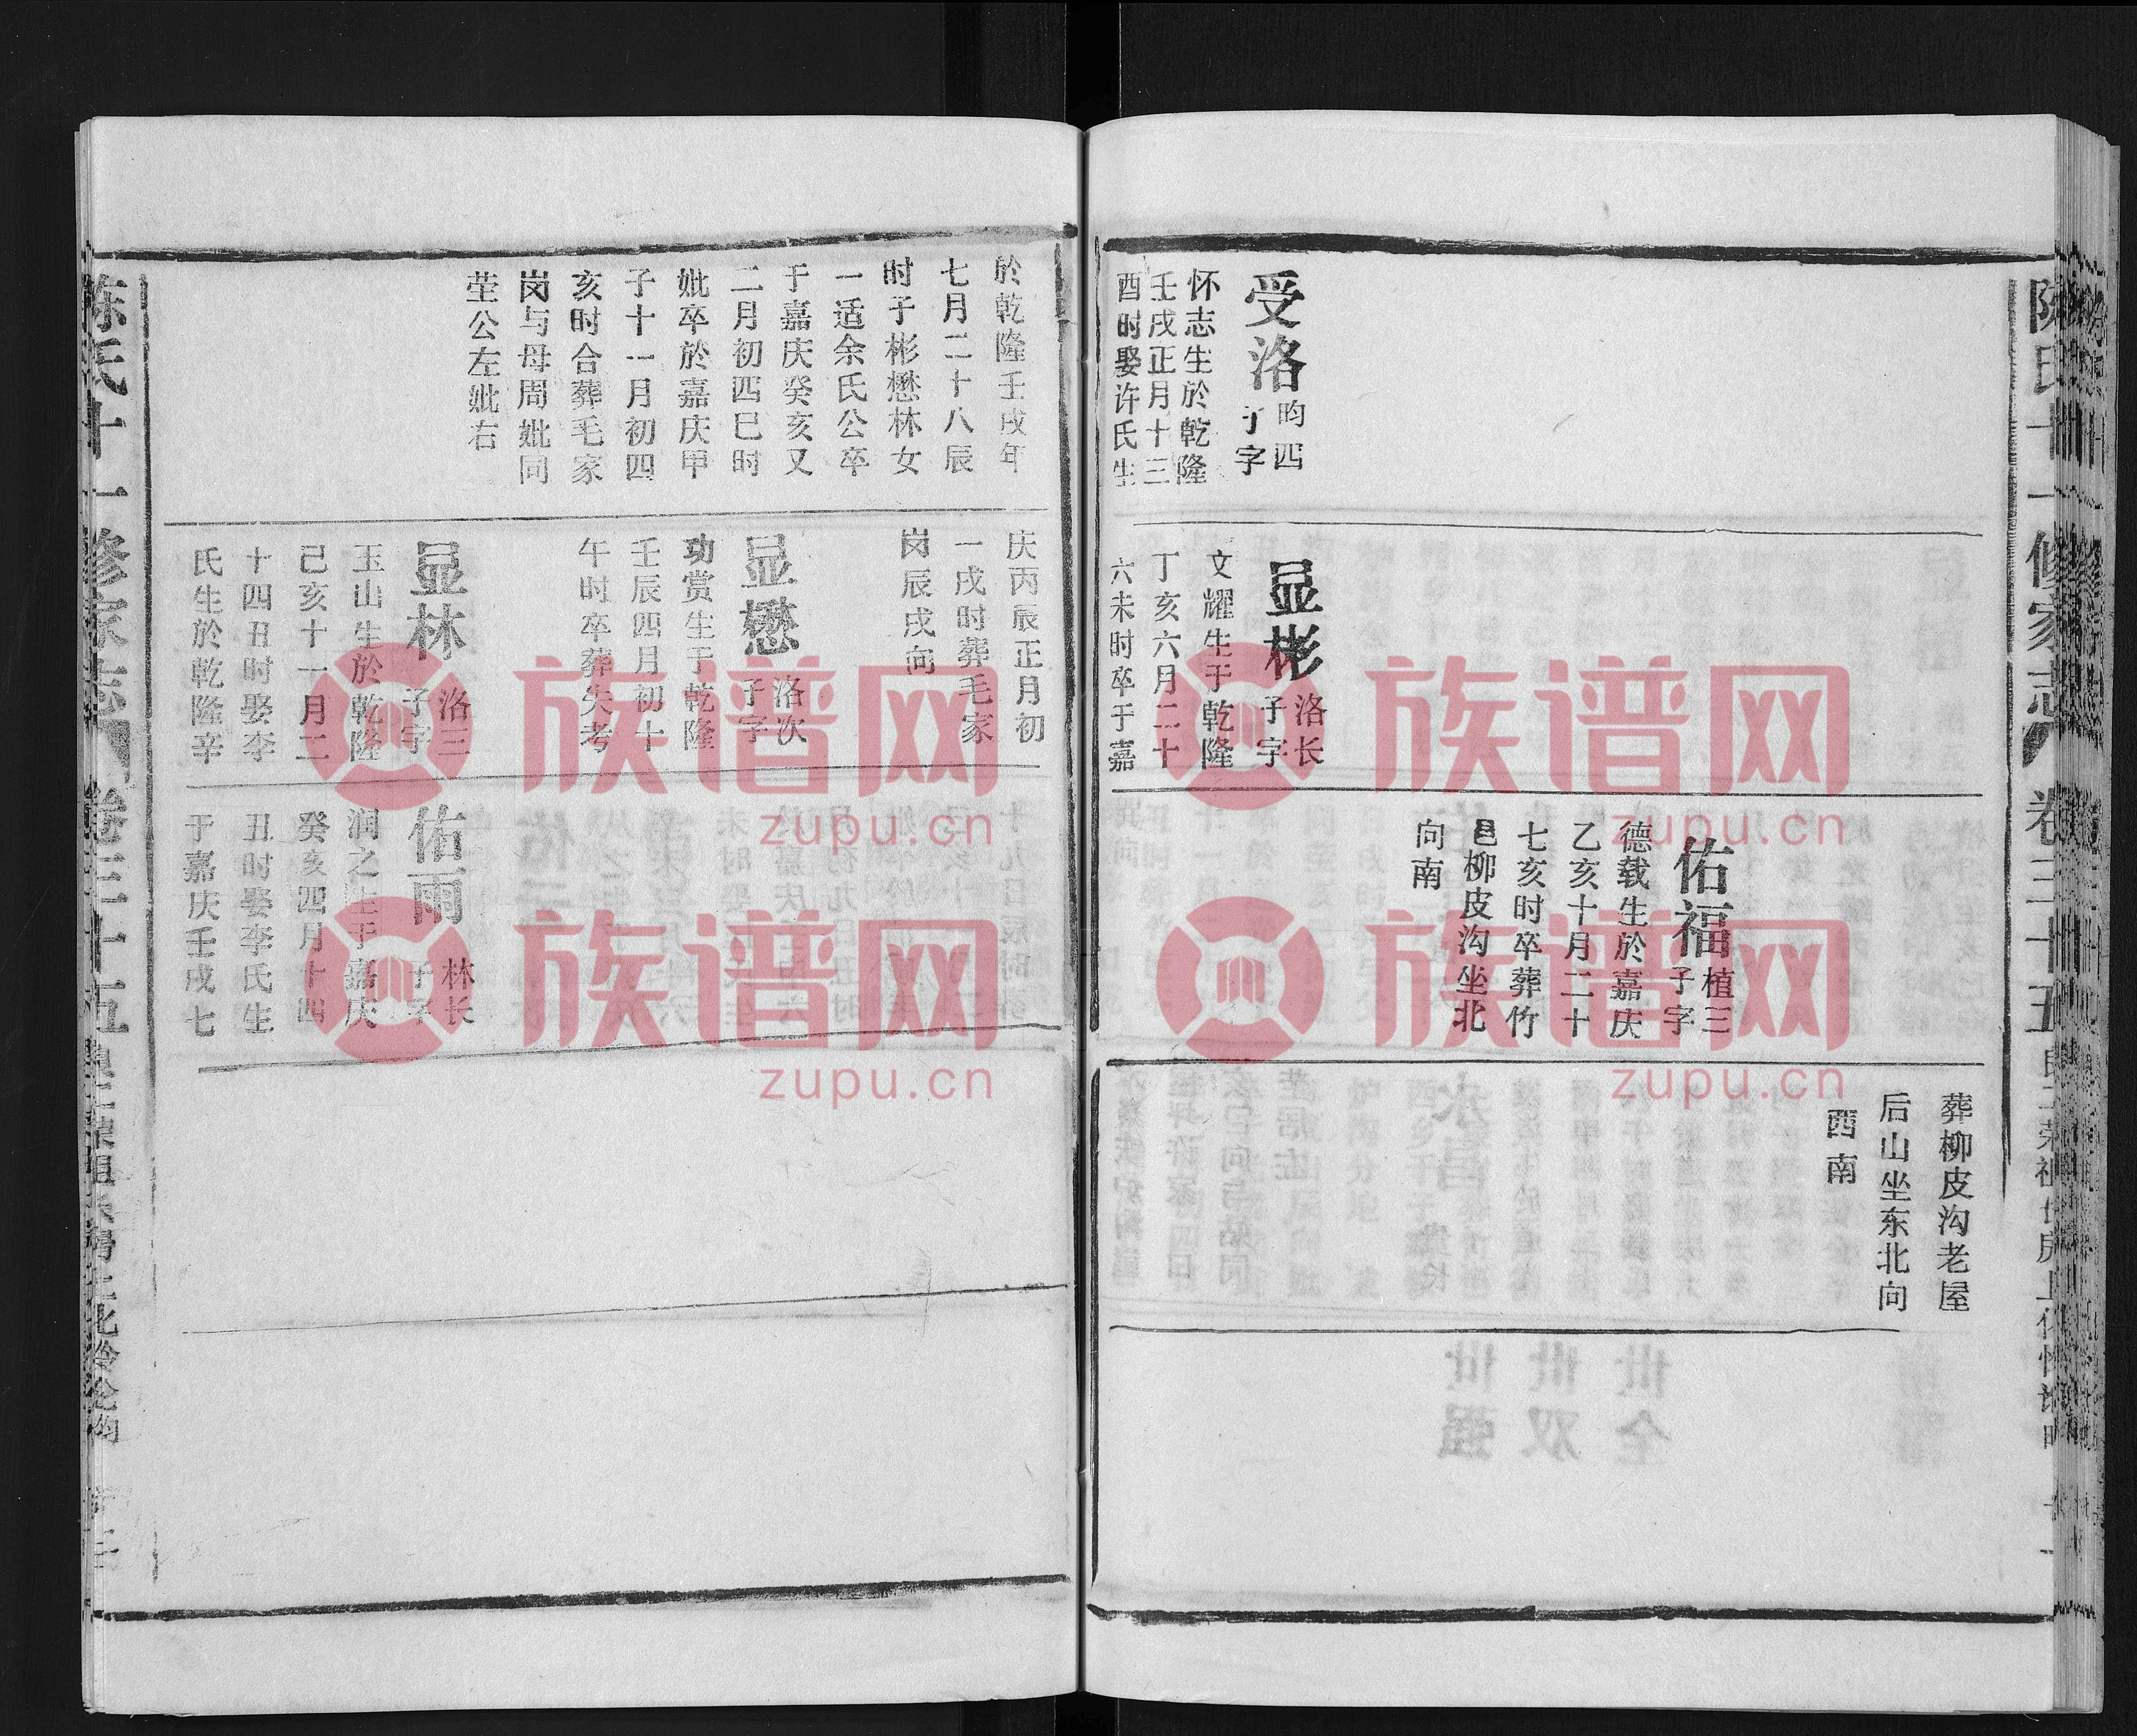 受洛
昀四
子字
怀志生於乾隆
壬戌正月十三
酉时娶许氏生
显彬
洛长
子字
文耀生于乾隆
丁亥六月二十
六未时卒于嘉
佑福
植三
子字
德载生於嘉庆
乙亥十月二十
七亥时卒葬竹
邑柳皮沟坐北
向南
葬柳皮沟老屋
后山坐东北向
西南
於乾隆壬戌年
七月二十八辰
时子彬懋林女
一适余氏公卒
于嘉庆癸亥又
二月初四巳时
妣卒於嘉庆甲
子十一月初四
亥时合葬毛家
岗与母周妣同
茔公左妣右
庆丙辰正月初
一戌时葬毛家
岗辰戌向
显懋
洛次
子字
功赏生于乾隆
壬辰四月初十
午时卒葬失考
显林
洛三
子字
玉山生於乾隆
己亥十一月二
十四丑时娶李
氏生於乾隆辛
佑雨
林长
子字
润之生于嘉庆
癸亥四月十四
丑时娶李氏生
于嘉庆壬戌七
陈氏十一修家志
卷三十五
族谱网
zupu.cn
族谱网
zupu.cn
族谱网
zupu.cn
族谱网
zupu.cn